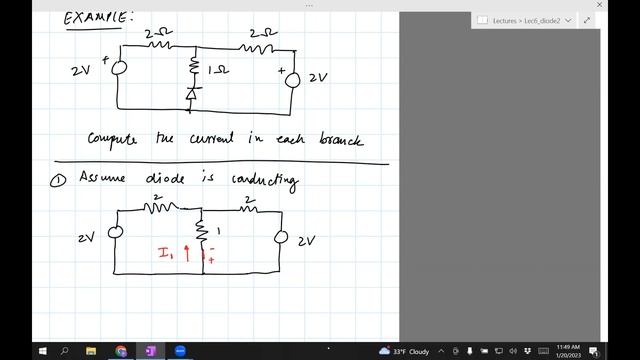 EXAMPLE:
2Ω
2Ω
+
1Ω
+
2V
2V
Compute the current in each branck
① Assume diode is conducting
2
2
1
2V
I₁
-
+
2V
Lectures > Lec6_diode2
33°F Cloudy
11:49 AM
1/20/2023